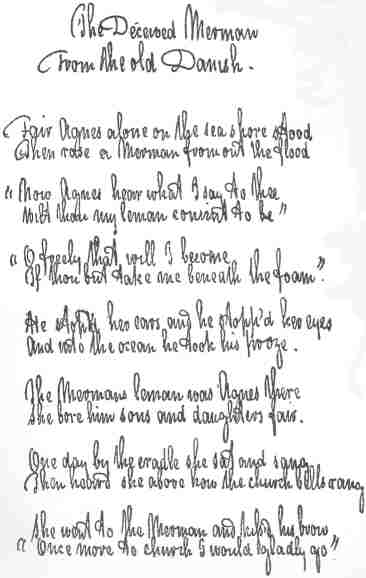 The Deceived Merman
From the old Danish.
Fair Agnes alone on the sea shore stood
Then rose a Merman from out the flood
"Now Agnes hear what I say to thee
Wilt thou my leman consent to be"
"O freely that will I become
If thou but take me beneath the foam".
He stopp'd her ears and he stopp'd her eyes
And into the ocean he took his prize.
The Mermans leman was Agnes there
She bore him sons and daughters fair.
One day by the cradle she sat and sang
Then heard she above how the church bells rang
She went to the Merman and kiss'd his brow
"Once more to church I would gladly go"